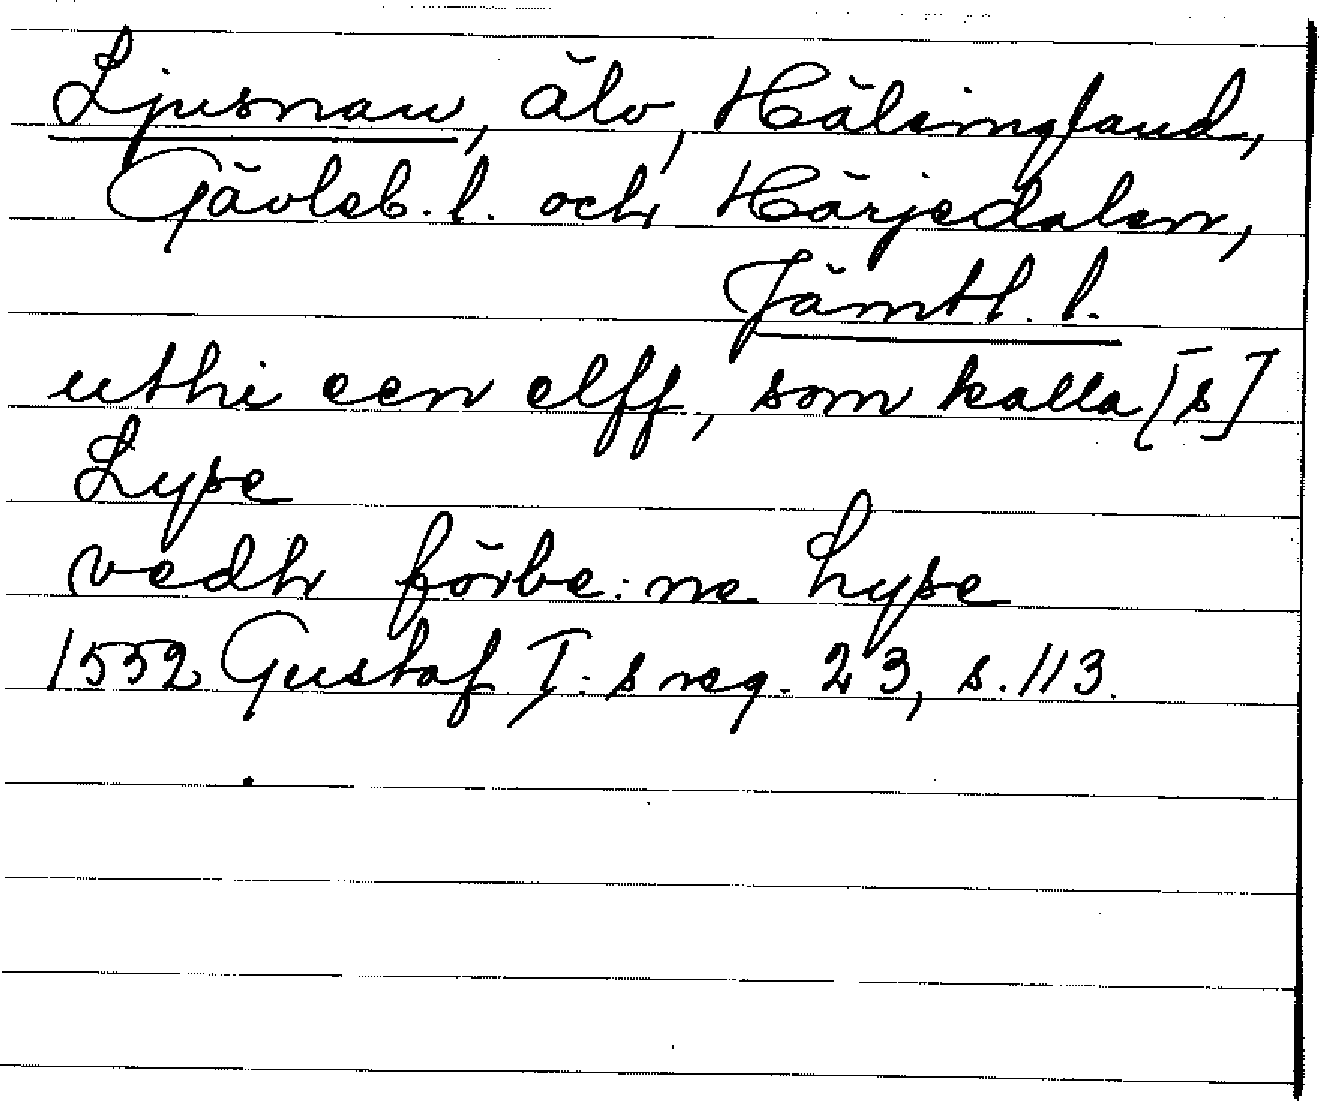 Ljusnan, älv, Hälsingland,
Gävleb. l. och Härjedalen,
Jämtl. l.
uthi een elff, som kalla[s]
Lyse
vedh förbe:ne Lyse
1552 Gustaf I:s reg. 23, s. 113.